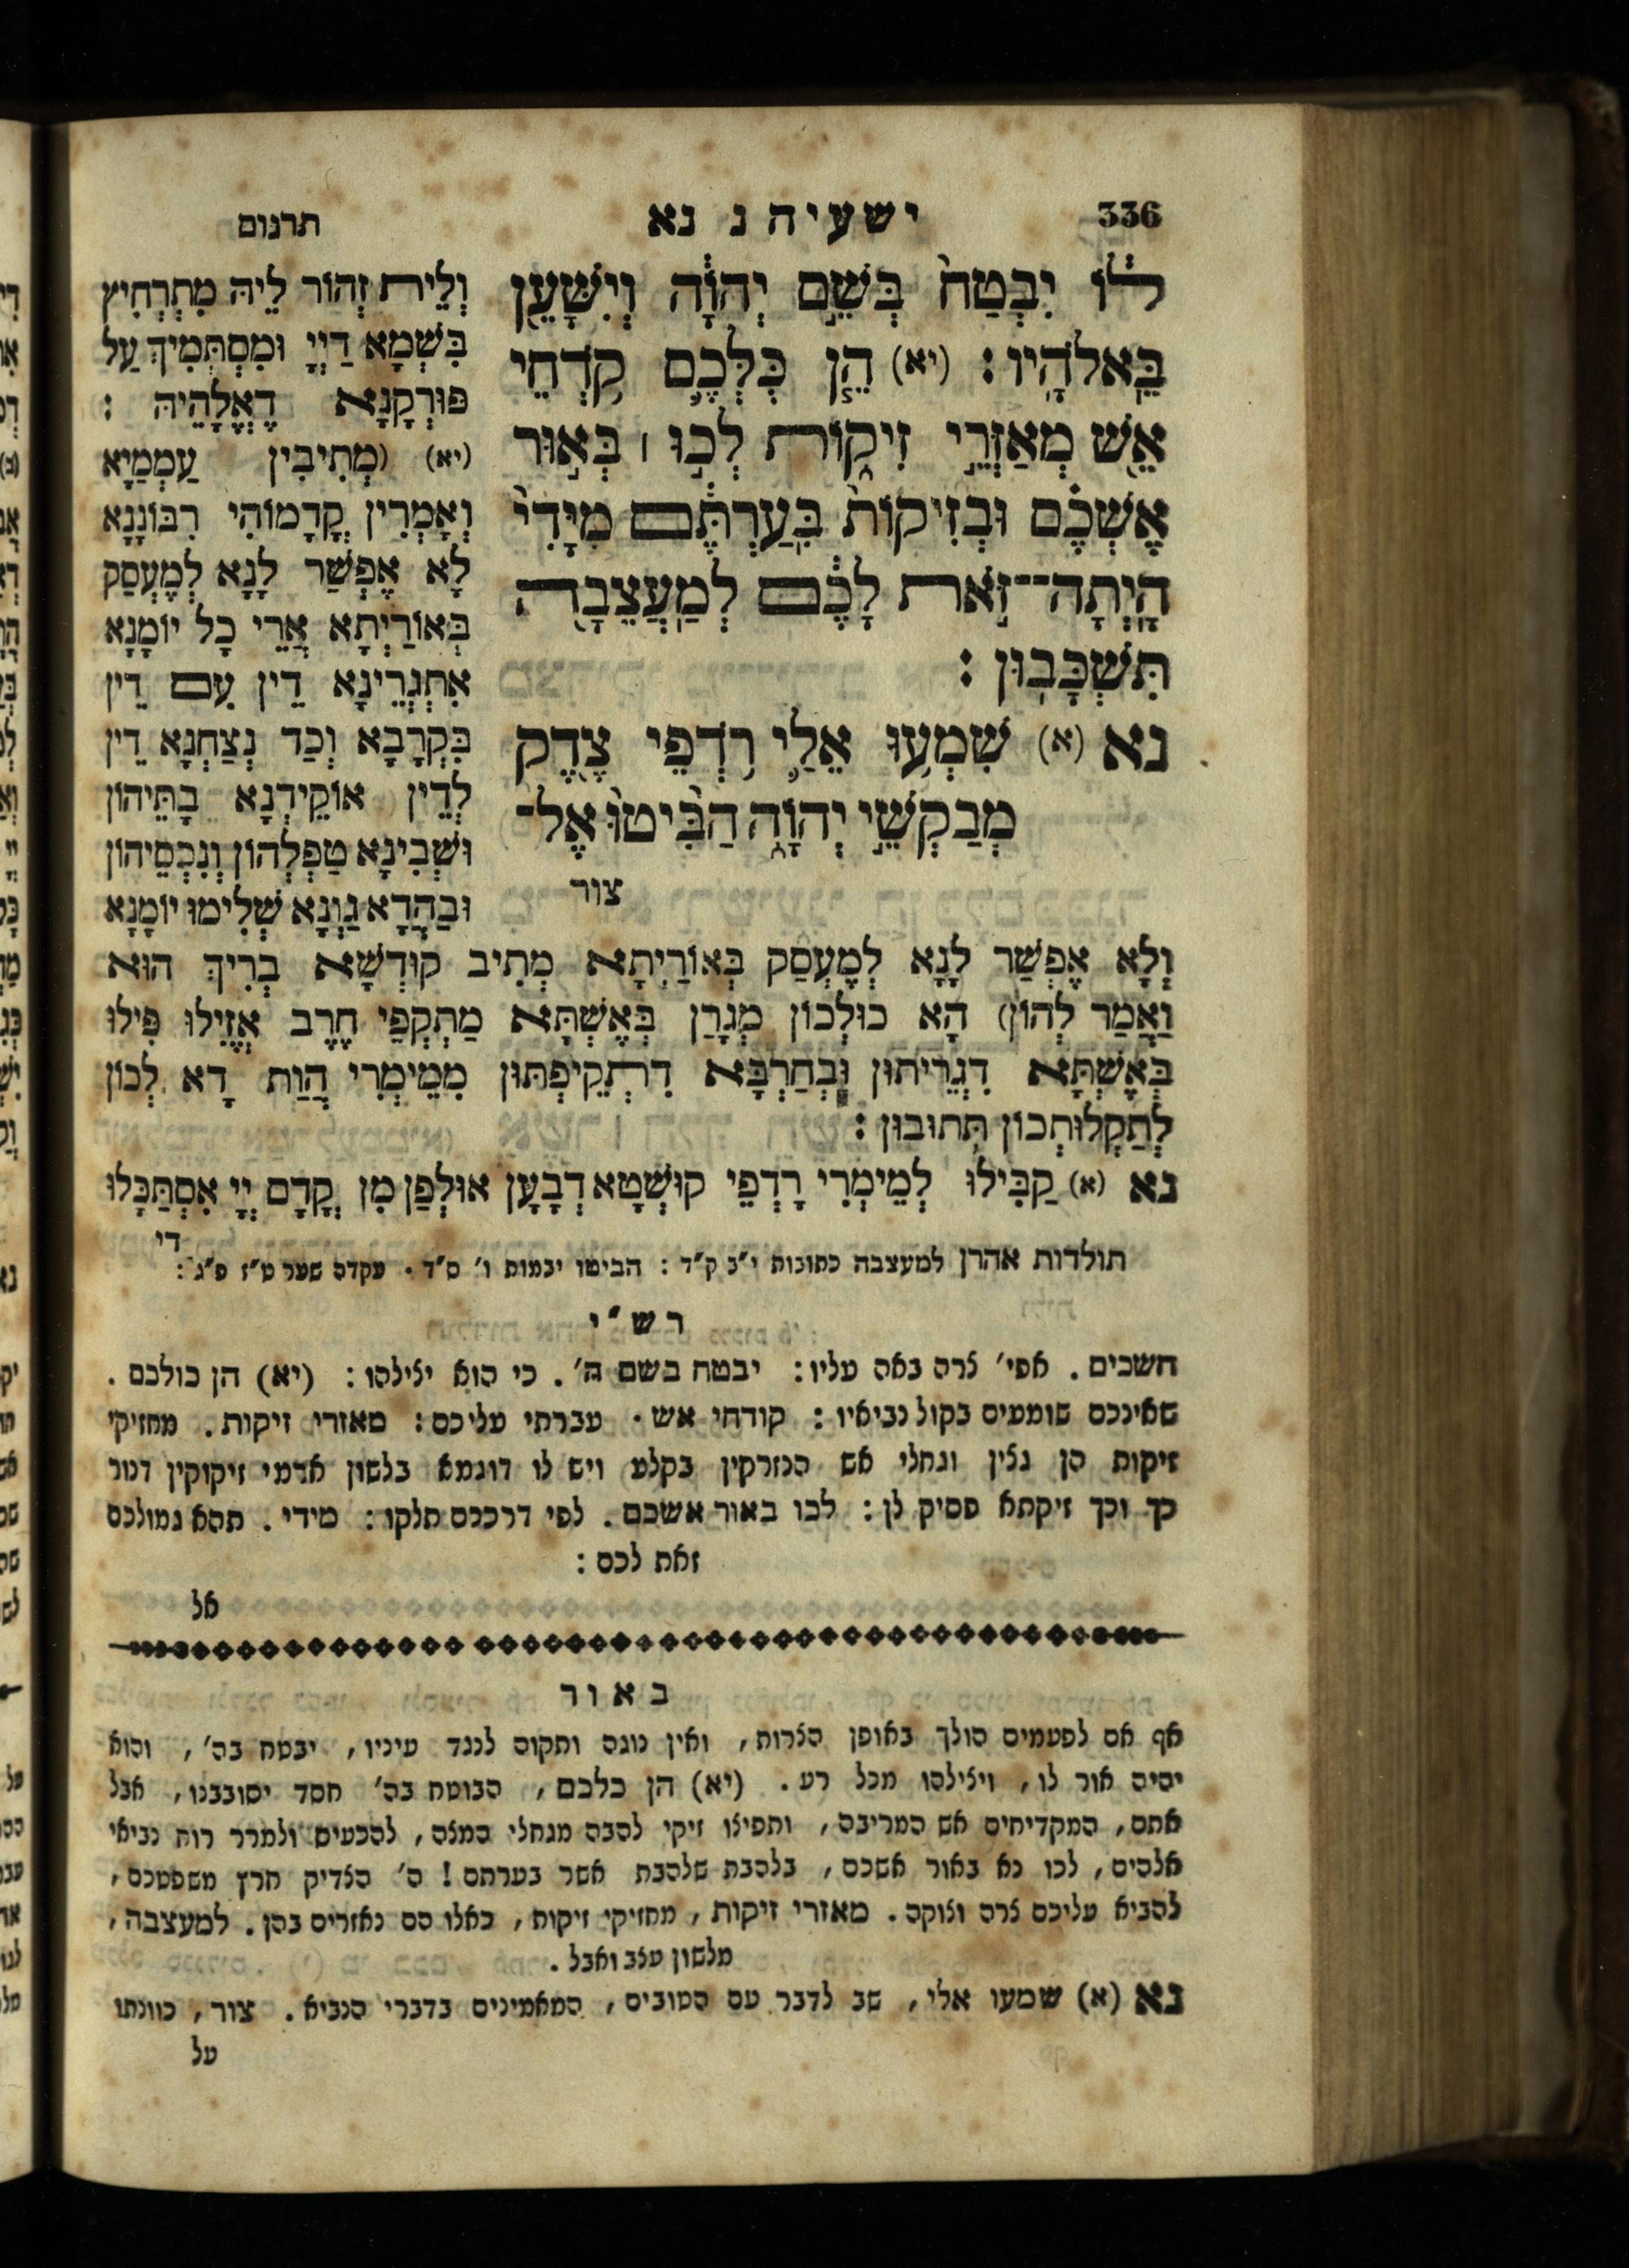 336
ישעיה נ נא
תרגום
לוֹ יִבְטַח֙ בְּשֵׁ֣ם יְהוָֹ֔ה וְיִשָּׁעֵ֖ן
בֵּֽאלֹהָֽיו׃ (יא) הֵ֧ן כֻּלְּכֶ֛ם קֹ֥דְחֵי
אֵ֖שׁ מְאַזְּרֵ֣י זִיק֑וֹת לְכ֣וּ ׀ בְּא֣וּר
אֶשְׁכֶ֗ם וּבְזִיקוֹת֙ בִּֽעַרְתֶּ֔ם מִיָּדִי֙
הָֽיְתָה־זֹּ֣את לָכֶ֔ם לְמַֽעֲצֵבָ֖ה
תִּשְׁכָּבֽוּן׃
נא (א) שִׁמְע֥וּ אֵלַ֛י רֹ֥דְפֵי צֶ֖דֶק
מְבַקְשֵׁ֣י יְהוָֹ֑ה הַבִּ֙יטוּ֙ אֶל־
צור
וְלֵית זְהוֹר לֵיהּ מִתְרְחִיץ
בִּשְׁמָא דַיְיָ וּמִסְתְּמִיךְ עַל
פּוּרְקָנָא דֶאֱלָהֵיהּ :
(יא) (מְתִיבִין עַמְמַיָא
וְאָמְרִין קֳדָמוֹהִי רִבּוֹנָנָא
לָא אֶפְשַׁר לָנָא לְמֶעְסַק
בְּאוֹרַיְתָא אֲרֵי כָל יוֹמָנָא
אִתְגְרֵינָא דֵין עִם דֵין
בִּקְרָבָא וְכַד נְצַחְנָא דֵין
לְדֵין אוֹקֵידְנָא בָתֵּיהוֹן
וּשְׁבִינָא טַפְלְהוֹן וְנִכְסֵיהוֹן
וּבַהֲדָא גַוְנָא שְׁלִימוּ יוֹמָנָא
וְלָא אֶפְשַׁר לָנָא לְמֶעְסַק בְּאוֹרַיְתָא מְתִיב קוּדְשָׁא בְרִיךְ הוּא
וַאֲמַר לְהוֹן) הָא כוּלְּכוֹן מְגָרַן בְּאֶשְׁתָּא מַתְקְפֵי חֶרֶב אֱזִילוּ פִּילוּ
בְּאֶשְׁתָּא דִגְרֵיתוּן וּבְחַרְבָּא דִתְקֵיפְתּוּן מִמֵימְרִי הֲוַת דָא לְכוֹן
לְתַקְלוּתְכוֹן תְּתוּבוּן :
נא (א) קַבִּילוּ לְמֵימְרִי רָדְפֵי קוּשְׁטָא דְבָעָן אוּלְפַן מִן קֳדָם יְיָ אִסְתַּכָּלוּ
די
תולדות אהרן למעצבה כתובות י״ב ק״ד : הביטו יבמות ו׳ ס״ד . עקדה שער ט״ז פ״ג :
רש״י
חשכים . אפי׳ צרה באה עליו : יבטח בשם ה׳ . כי הוא יצילהו : (יא) הן כולכם .
שאינכם שומעים בקול נביאיו : קודחי אש . עברתי עליכם : מאזרי זיקות . מחזיקי
זיקות הן גצין וגחלי אש הנזרקין בקלע ויש לו דוגמא בלשון ארמי זיקוקין דנור
כך וכך זיקתא פסיק לן : לכו באור אשכם . לפי דרככם תלקו : מידי . תהא גמולכם
זאת לכם :
אל
באור
אף אם לפעמים הולך באופן הצרות , ואין נוגה ותקוה לנגד עיניו , יבטח בה׳ , והוא
יהיה אור לו , ויצילהו מכל רע . (יא) הן כלכם , הבוטח בה׳ חסד יסובבנו , אבל
אתם , המקדיחים אש המריבה , ותפיצו זיקי להבה מגחלי המצה , להכעיס ולמרר רוח נביאי
אלהים , לכו נא באור אשכם , בלהבת שלהבת אשר בערתם ! ה׳ הצדיק חרץ משפטכם ,
להביא עליכם צרה וצוקה . מאזרי זיקות , מחזיקי זיקות , כאלו הם נאזרים בהן . למעצבה ,
מלשון עצב ואבל .
נא (א) שמעו אלי , שב לדבר עם הטובים , המאמינים בדברי הנביא . צור , כוונתו
על